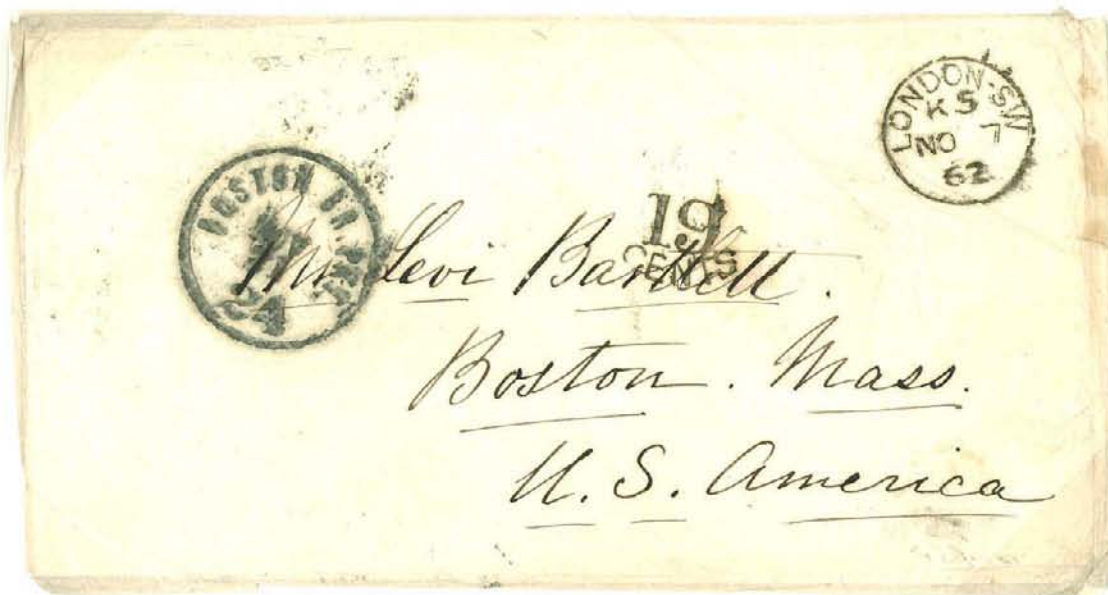 LONDON-SW
K5
NO 7
62
BOSTON BR. PKT
24
19
CENTS
Mr. Levi Bartlett.
Boston. Mass.
U. S. America